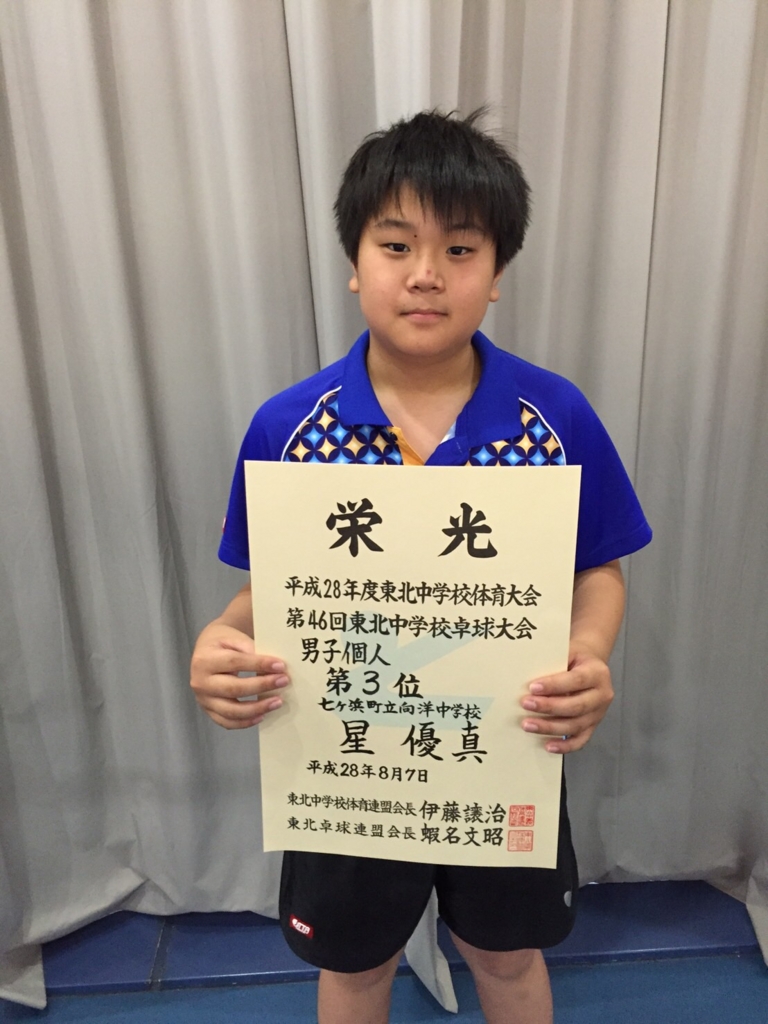 栄光
平成28年度東北中学校体育大会
第46回東北中学校卓球大会
男子個人
第3位
七ヶ浜町立向洋中学校
星 優真
平成28年8月7日
東北中学校体育連盟会長 伊藤讓治
東北卓球連盟会長 蝦名文昭